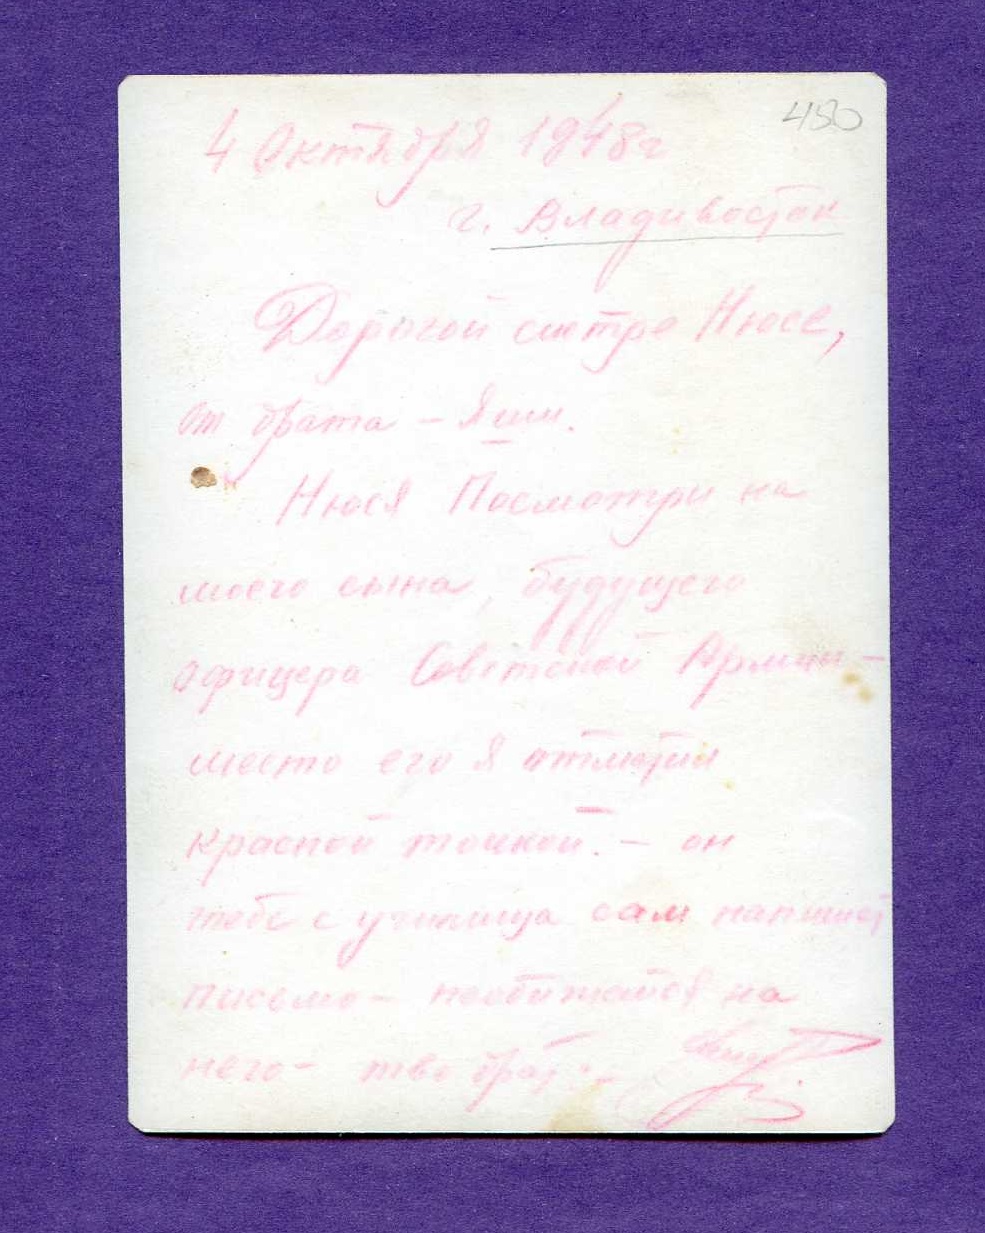 480
4 Октября 1948г
г. Владивосток
Дорогой систре Нюсе,
от брата – Яши.
Нюся Посмотри на
моего сына, будущего
офицера Советской Армии –
место его я отметил
красной точкой. – он
тебе с училища сам напишет
письмо – необижайся на
него – тво брат: –